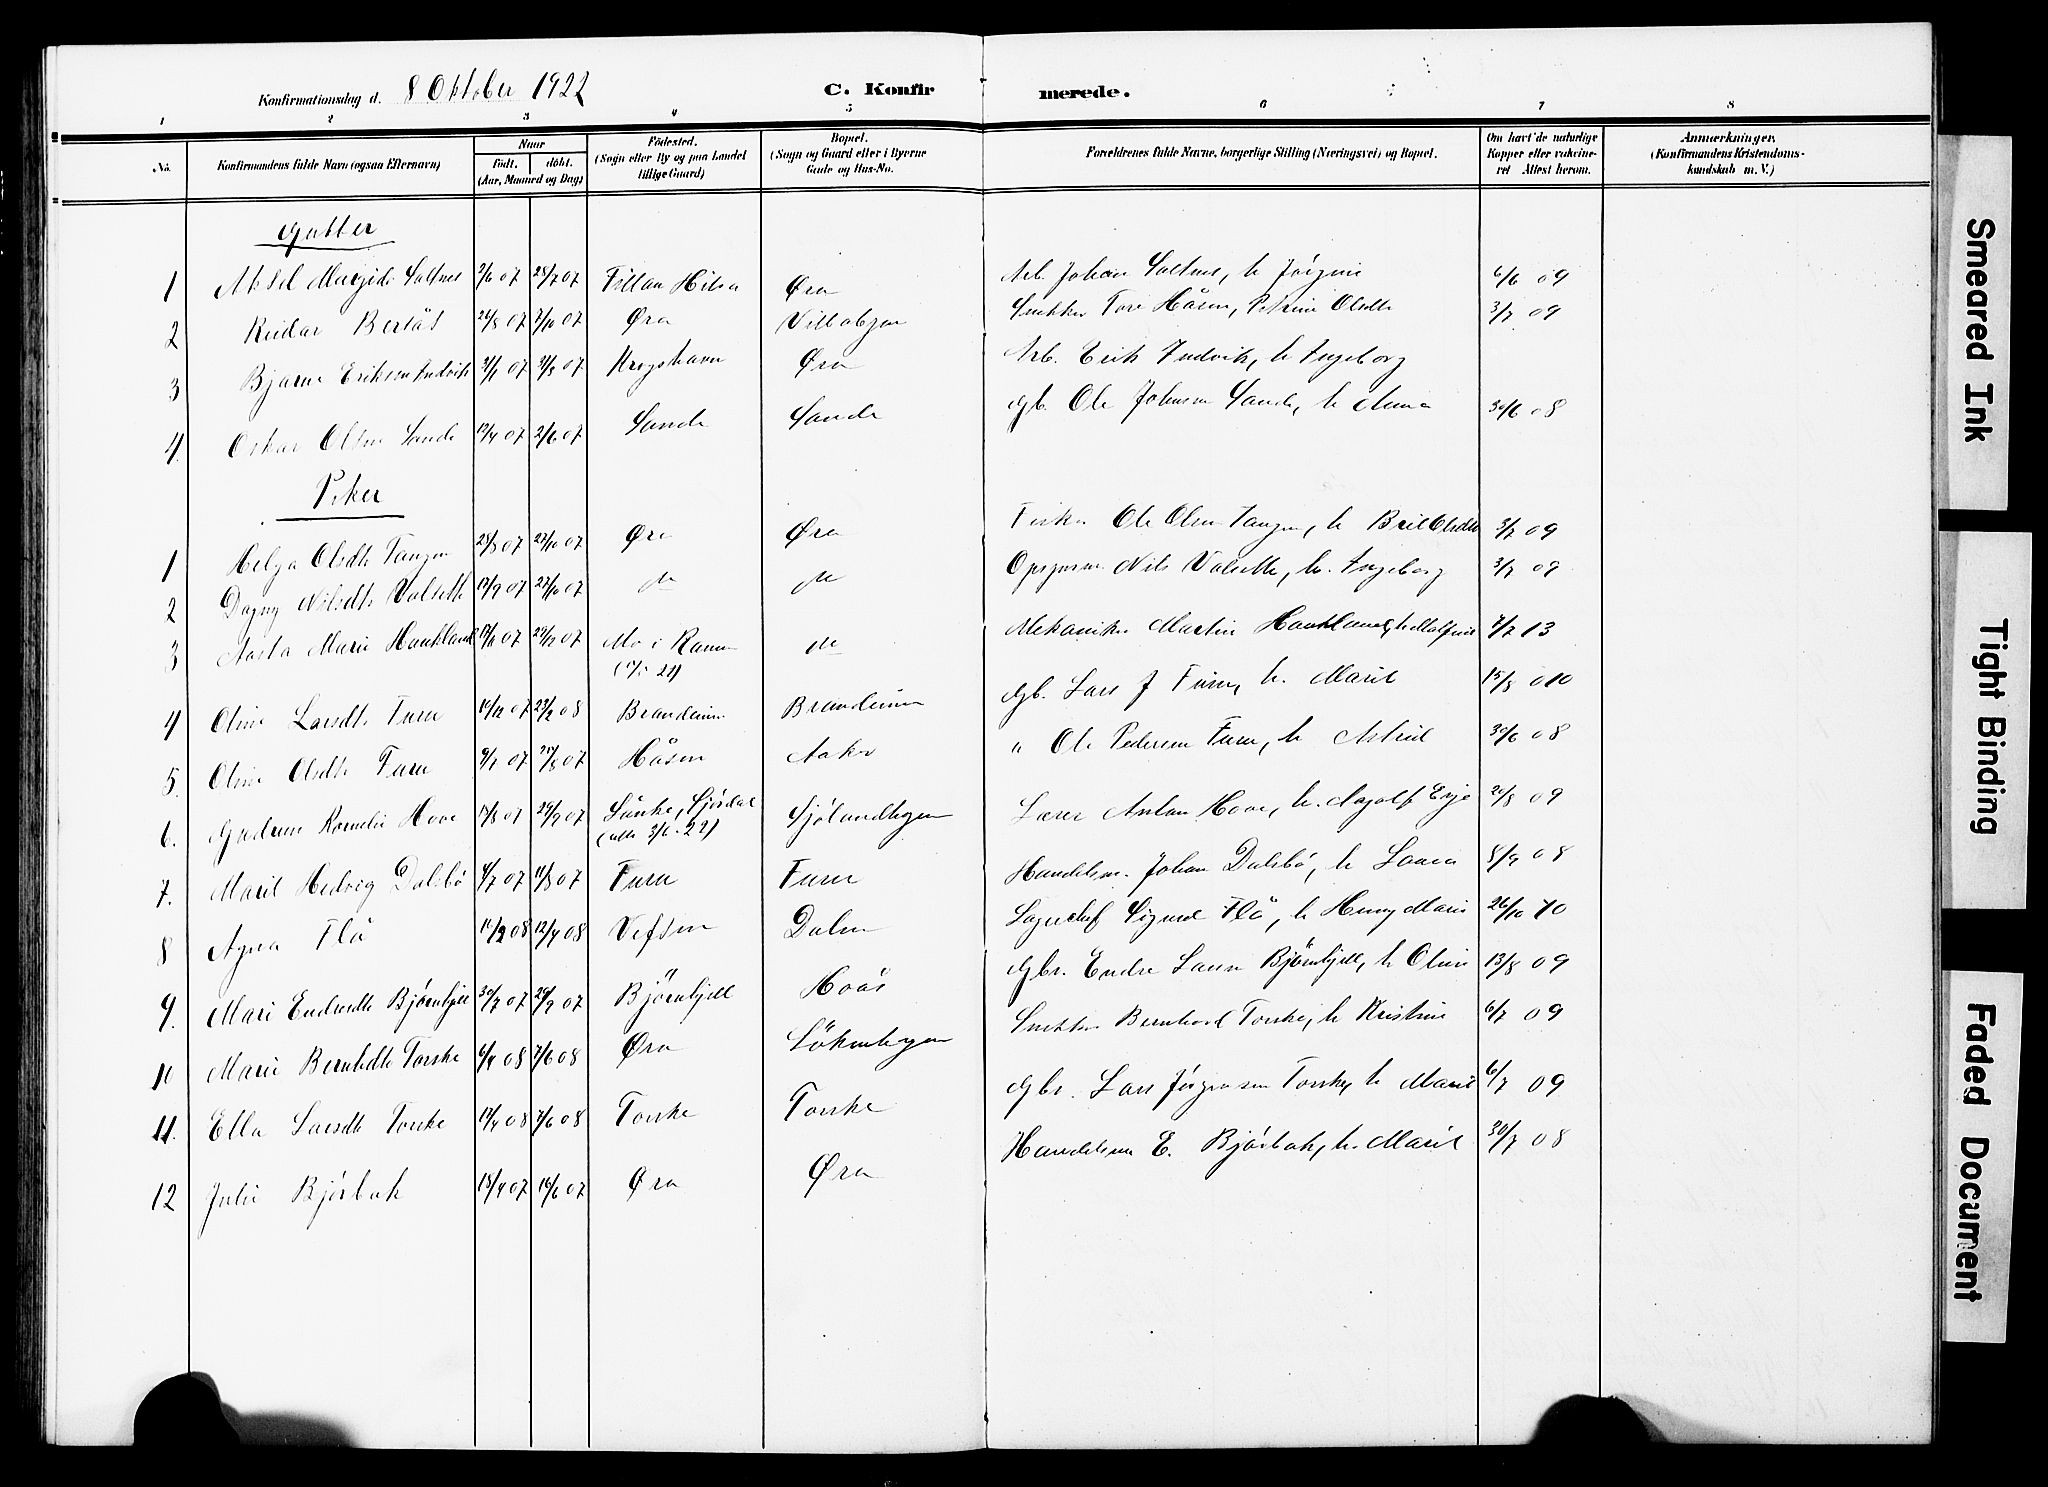 Konfirmationsdag d. 8 Oktober 1922 C. Konfir merede.
1 2 3 4 5 6 7 8
No. Konfirmandens fulde Navn (ogsaa Efternavn) Naar födt. döbt. (Aar, Maaned og Dag) Födested. (Sogn eller By og paa Landet tillige Gaard) Bopæl. (Sogn og Gaard eller i Byerne Gade og Hus-No. Forældrenes fulde Navne, borgerlige Stilling (Næringsvei) og Bopæl. Om havt de naturlige Kopper eller vakcineret Attest herom. Anmærkninger, (Konfirmandens Kristendomskundskab m. V.)
Gutter
1 Aksel Saltnes 2/6 07 28/7 07 Fillan Hitra Øra Arb. Johan Saltnes, h Jörgine 6/6 09
2 Reidar Bertås 24/8 07 Øra Snekker Tore Håsen, Petrine Olsdtr 3/7 09
3 Bjarne Eriksen Indvik Øra Arb. Erik Indvik, h Ingeborg
4. Oskar Olsen Sande 12/4 07 2/6 07 Sande Sande Gb. Ole Johnsen Sande, h Anna 30/6 08
Piker
1 Helga Olsdtr Tangen 28/8 07 27/10 07 Øra Øra Fisker Ole Olsen Tangen, h Beret Olsdtr 3/7 09
2 Dagny Nilsdtr Valsette 27/10 07 do do Nils Valsette, h. Ingeborg 3/7 09
3 Aasta Marie Haukland 29/12 07 Mo i Ranen do Mekaniker Martin Haukland, h 7/7 13
4 Oline Larsdtr Furu 10/12 07 23/2 08 Gb. Lars J Furu, h. Marit 15/8 010
5. Oline Olsdtr Furu 9/7 07 Håsen Aaker " Ole Pedersen Furu, h Astrid 30/6 08
6. Gudrun Kornelie Hove 17/8 07 29/9 07 Lånke, Stjördal (att. 3/6 - 22) Lærer Anton Hove, h. 21/8 09
7. Marit Hedvig Dalsbö 4/7 07 11/8 07 Furu Furu Handelsm. Johan Dalsbö, h Laura 8/9 08
8 Agnea Flå 12/4 08 Vefsen Dalen Lagerchef Sigurd Flå, h Henny Marie 26/10 10
9. Mari Endresdtr Björnhjell 30/7 07 29/9 07 Björnhjell Hoås Gbr. Endre Larsen Björnhjell, h Oline 13/8 09
10 Marie Bernhdtr Torske 6/4 08 7/6 08 Øra Snekker Bernhard Torske, h Kristine 6/7 09
11. Ella Larsdtr Torske 14/4 08 7/6 08 Torske Torske Gbr. Lars Jörgensen Torske, h Marit 6/7 09
12 Julie Björbak 18/4 07 16/6 07 Øra Øra Handelsm E. Björbak, h. Marit 30/7 08
Smeared Ink
Tight Binding
Faded Document